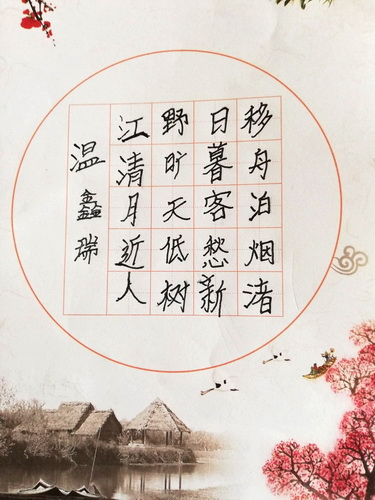 移舟泊烟渚
日暮客愁新
野旷天低树
江清月近人
温鑫瑞